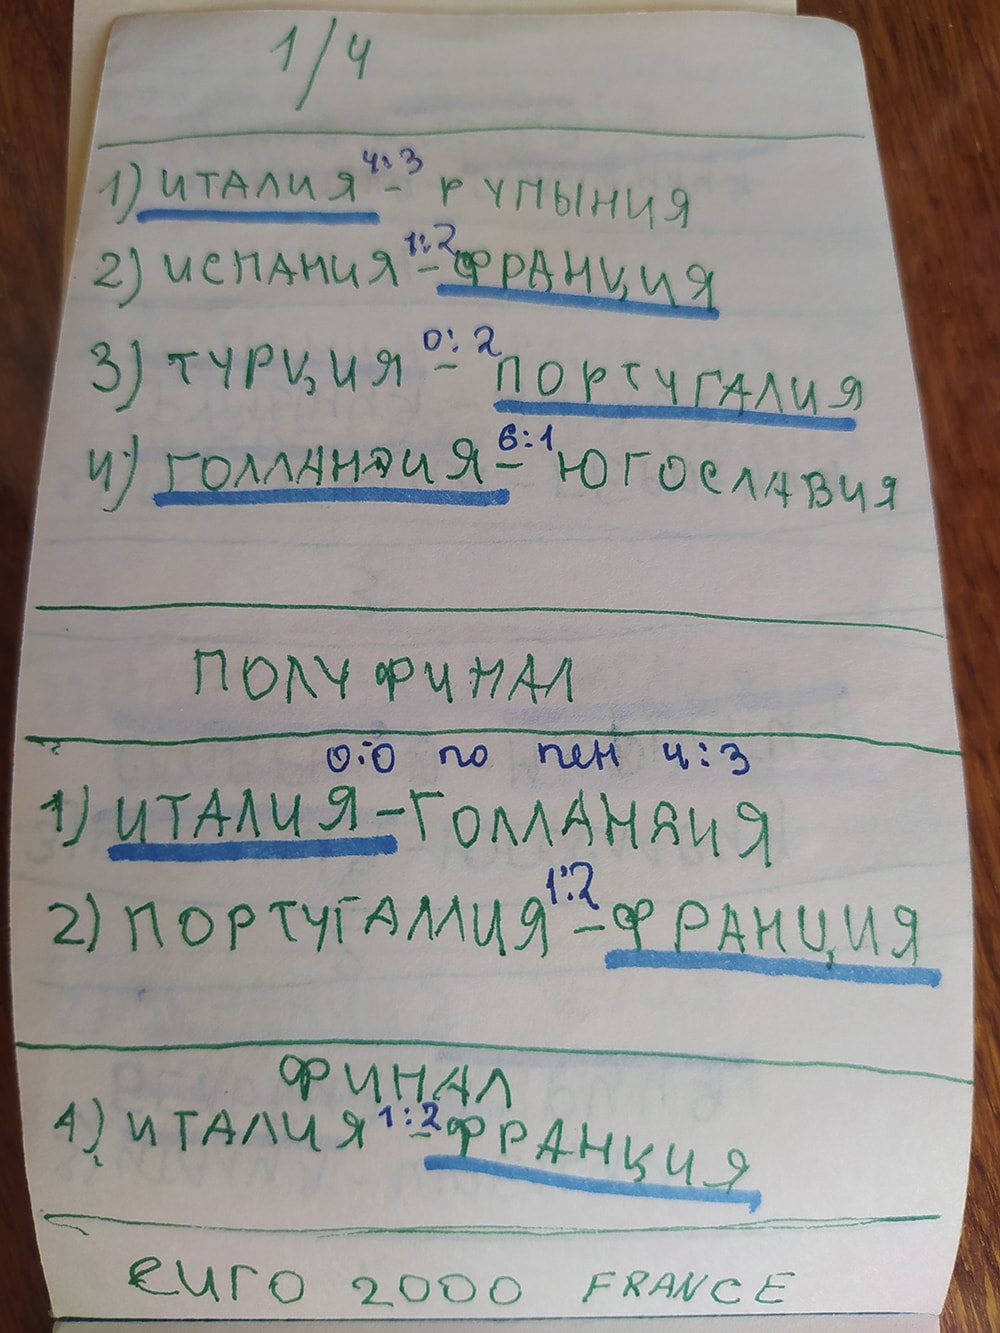 1/4
1) ИТАЛИЯ 4:3 - РУМЫНИЯ
2) ИСПАНИЯ 1:2 - ФРАНЦИЯ
3) ТУРЦИЯ 0:2 - ПОРТУГАЛИЯ
4) ГОЛЛАНДИЯ 6:1 - ЮГОСЛАВИЯ
ПОЛУФИНАЛ
0:0 по пен 4:3
1) ИТАЛИЯ - ГОЛЛАНДИЯ
2) ПОРТУГАЛЛИЯ 1:2 - ФРАНЦИЯ
ФИНАЛ
1) ИТАЛИЯ 1:2 - ФРАНЦИЯ
EUrO 2000 FRANCE